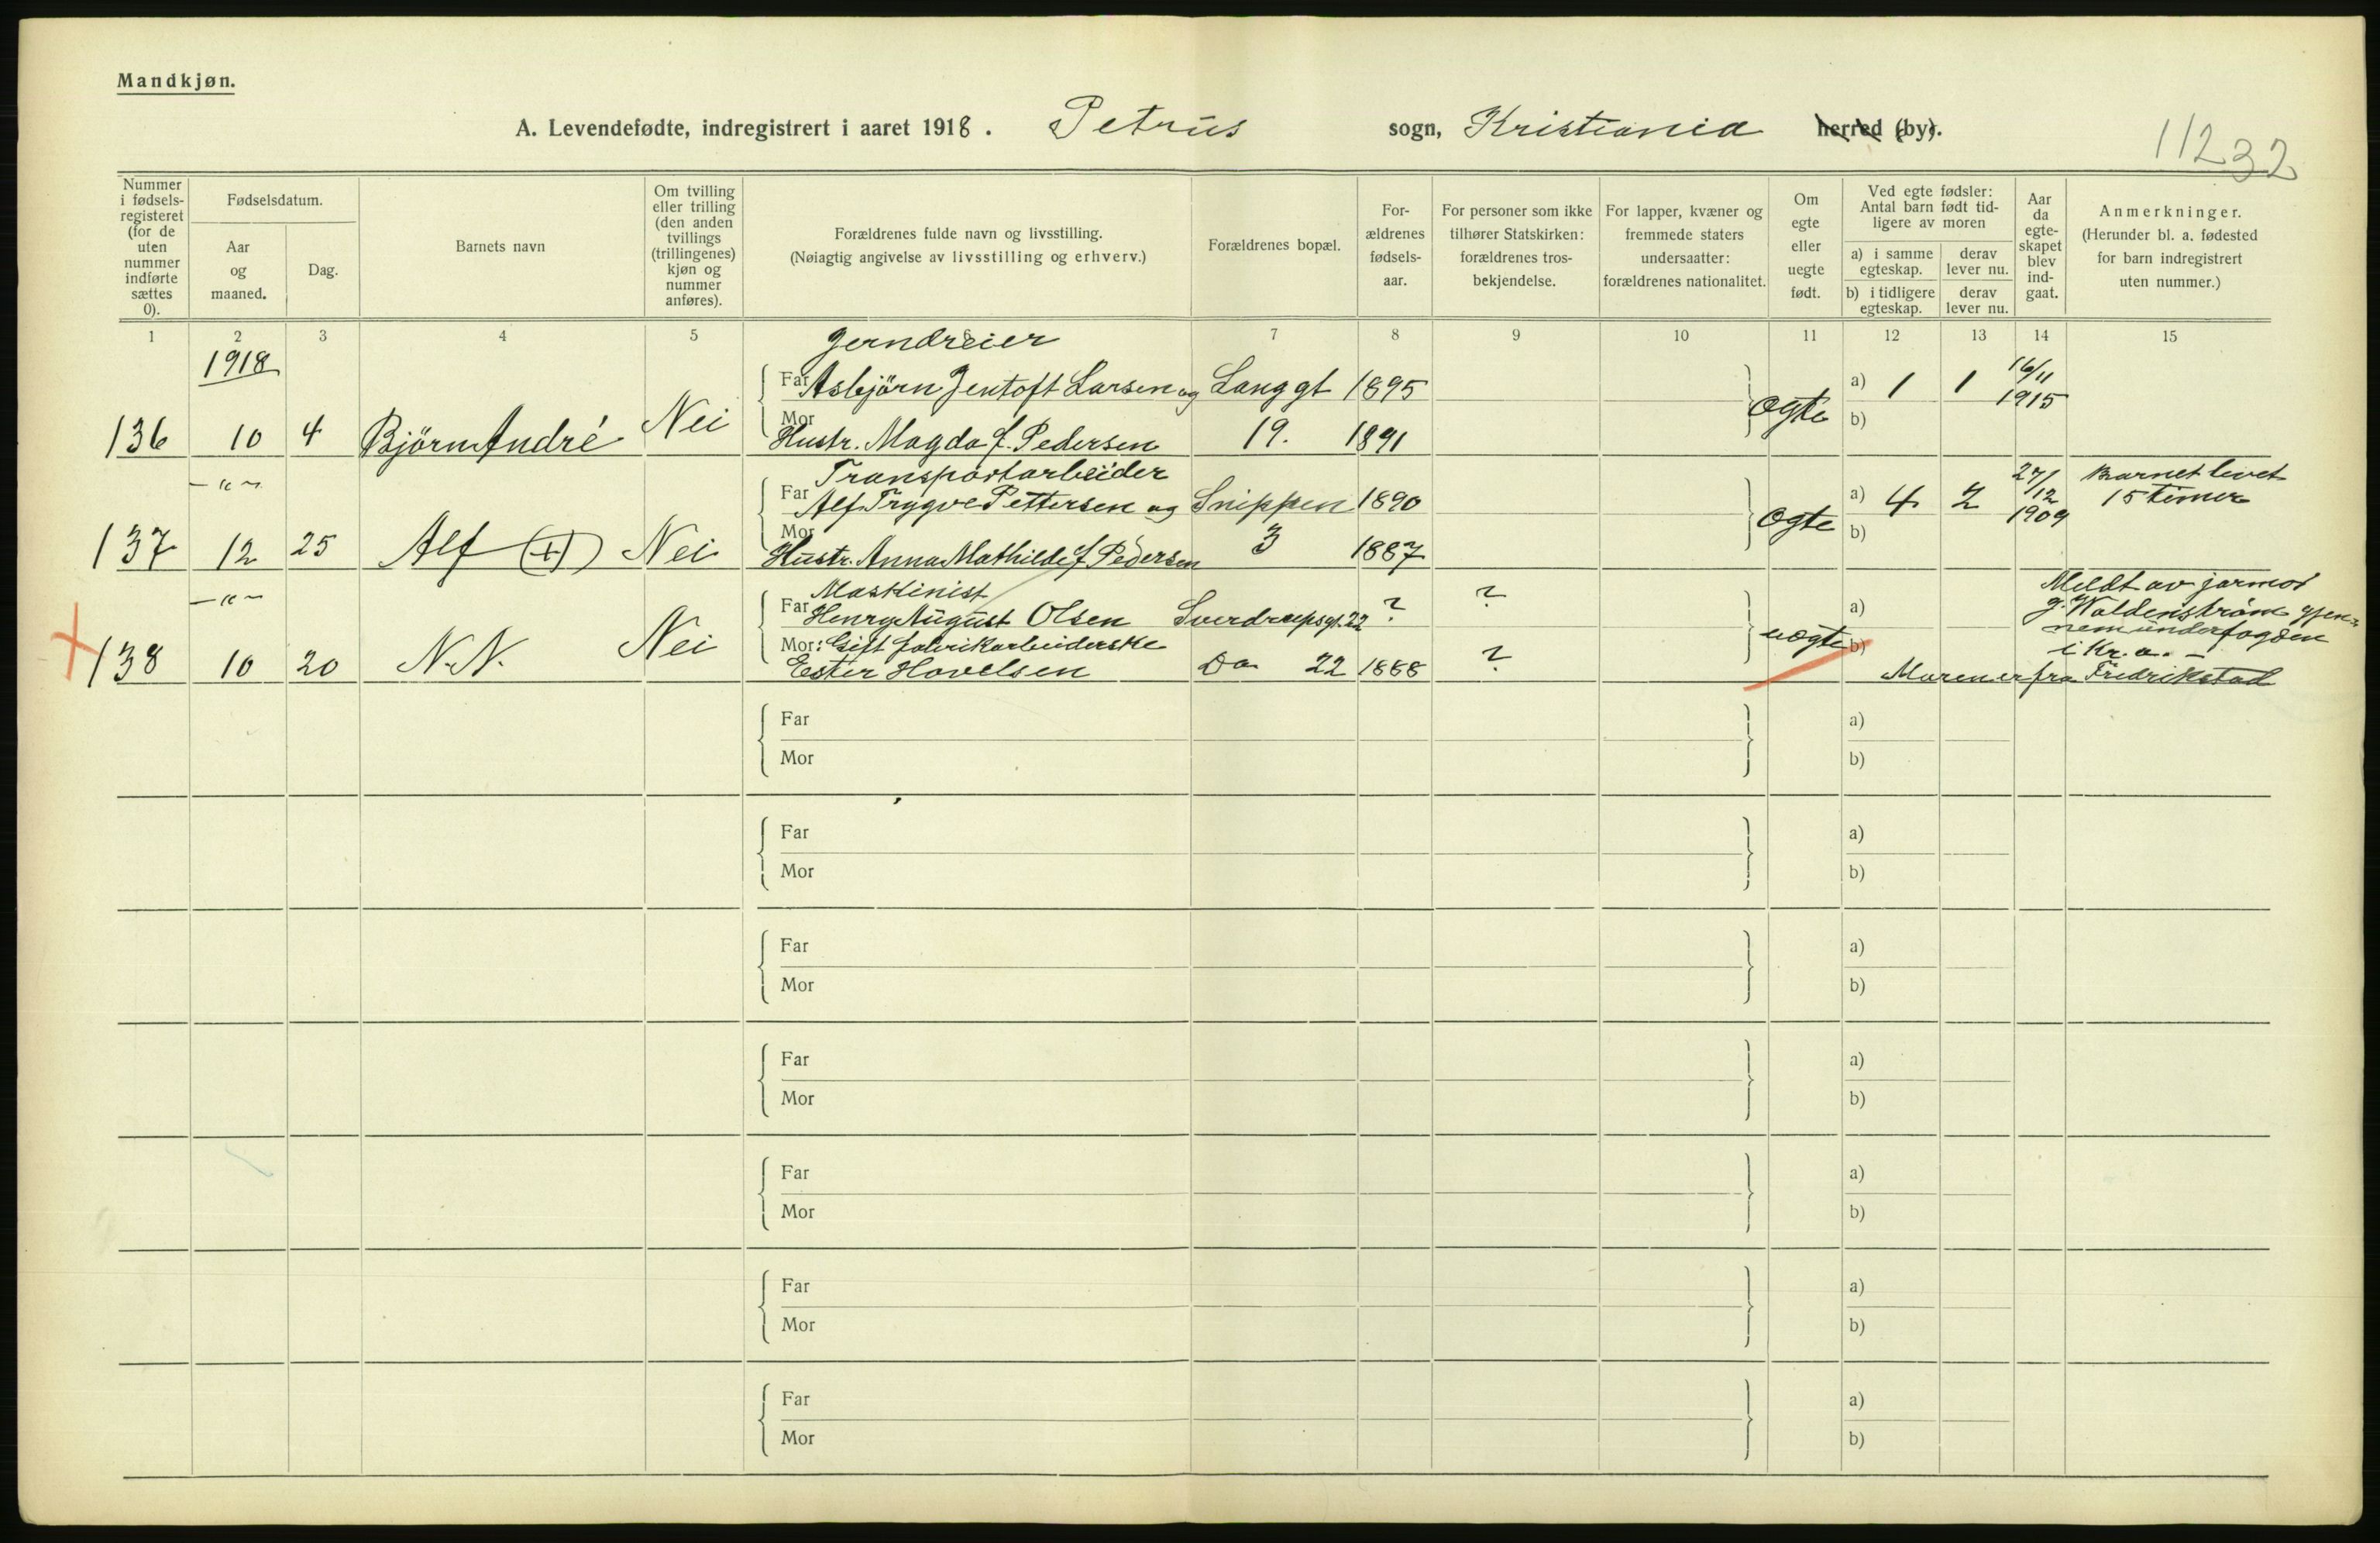 Mandkjøn.
A. Levendefødte, indregistrert i aaret 1918. Petrus sogn, Kristiania herred (by).
11232
Nummer i fødsels-registeret (for de uten nummer indførte sættes 0).
Fødselsdatum.
Aar og maaned.
Dag.
Barnets navn
Om tvilling eller trilling (den anden tvillings (trillingenes) kjøn og nummer anføres).
Forældrenes fulde navn og livsstilling.
(Nøiagtig angivelse av livsstilling og erhverv.)
Forældrenes bopæl.
For-ældrenes fødsels-aar.
For personer som ikke tilhører Statskirken: forældrenes tros-bekjendelse.
For lapper, kvæner og fremmede staters undersaatter: forældrenes nationalitet.
Om egte eller uegte født.
Ved egte fødsler: Antal barn født tid-ligere av moren
a) i samme egteskap.
derav lever nu.
b) i tidligere egteskap.
derav lever nu.
Aar da egte-skapet blev ind-gaat.
Anmerkninger.
(Herunder bl. a. fødested for barn indregistrert uten nummer.)
1 2 3 4 5 6 7 8 9 10 11 12 13 14 15
1918
Jerndreier
Far Asbjörn Jentoft Larsen og Langgt 1895 a) 1 1 16/11 1915
136 10 4 Björn André Nei Mor Hustr. Magda f. Pedersen 19. 1891 Ogte b)
— " — Transportarbeider
Far Alf Trygve Pettersen og Snippen 1890 a) 4 2 27/12 1909 Barnet levet 15 timer
137 12 25 Alf (+) Nei Mor Hustr. Anna Mathilde f. Pedersen 3 1887 Ogte b)
— " — Maskinist
Far Henry August Olsen Sverdrupsgt. 22 ? ? a)
138 10 20 N.N. Nei Mor: Gift fabrikarbeiderske
Ester Hovelsen Do 22 1888 ? uogte b)
Meldt av jormor
g. Waldenström gjen-
nem underfogden
i Kr.a. —
Moren er fra Fredrikstad
Far a)
Mor b)
Far a)
Mor b)
Far a)
Mor b)
Far a)
Mor b)
Far a)
Mor b)
Far a)
Mor b)
Far a)
Mor b)